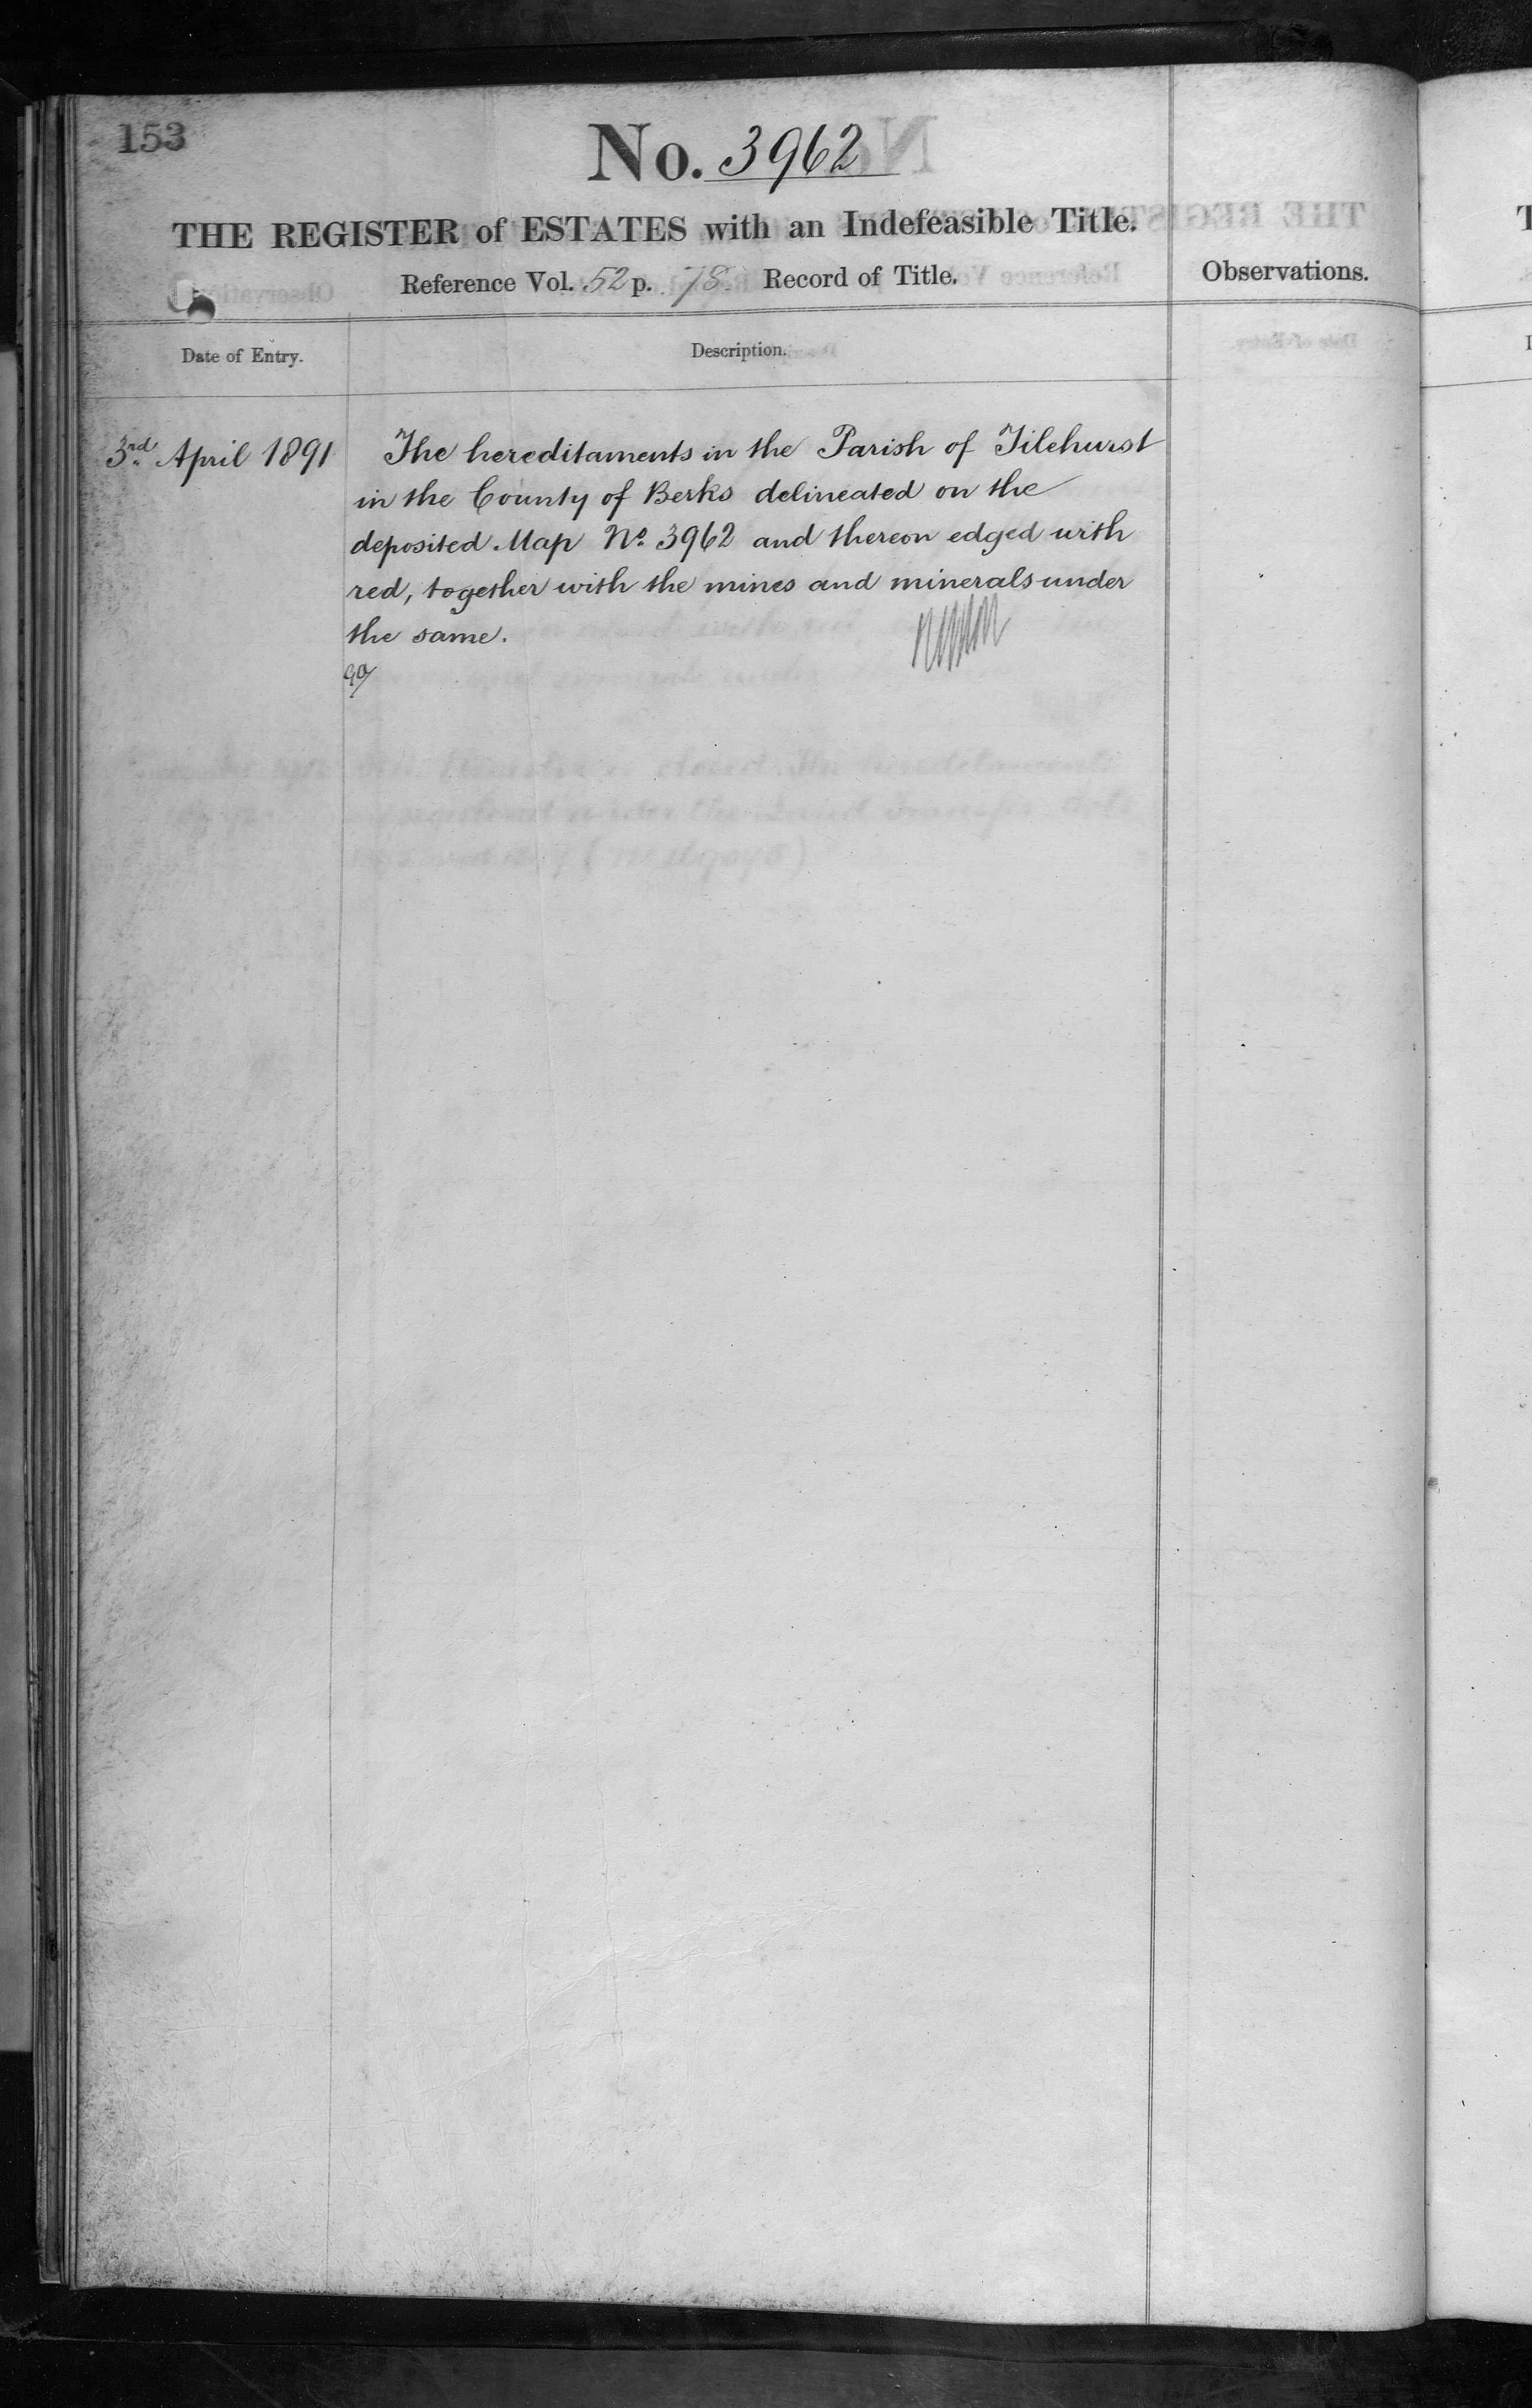 153
No. 3962
THE REGISTER of ESTATES with an Indefeasible Title.
Reference Vol. 52 p. 78. Record of Title.
Observations.
Date of Entry.
Description.
3rd April 1891
The hereditaments in the Parish of Tilehurst
in the County of Berks delineated on the
deposited Map No. 3962 and thereon edged with
red, together with the mines and minerals under
the same.